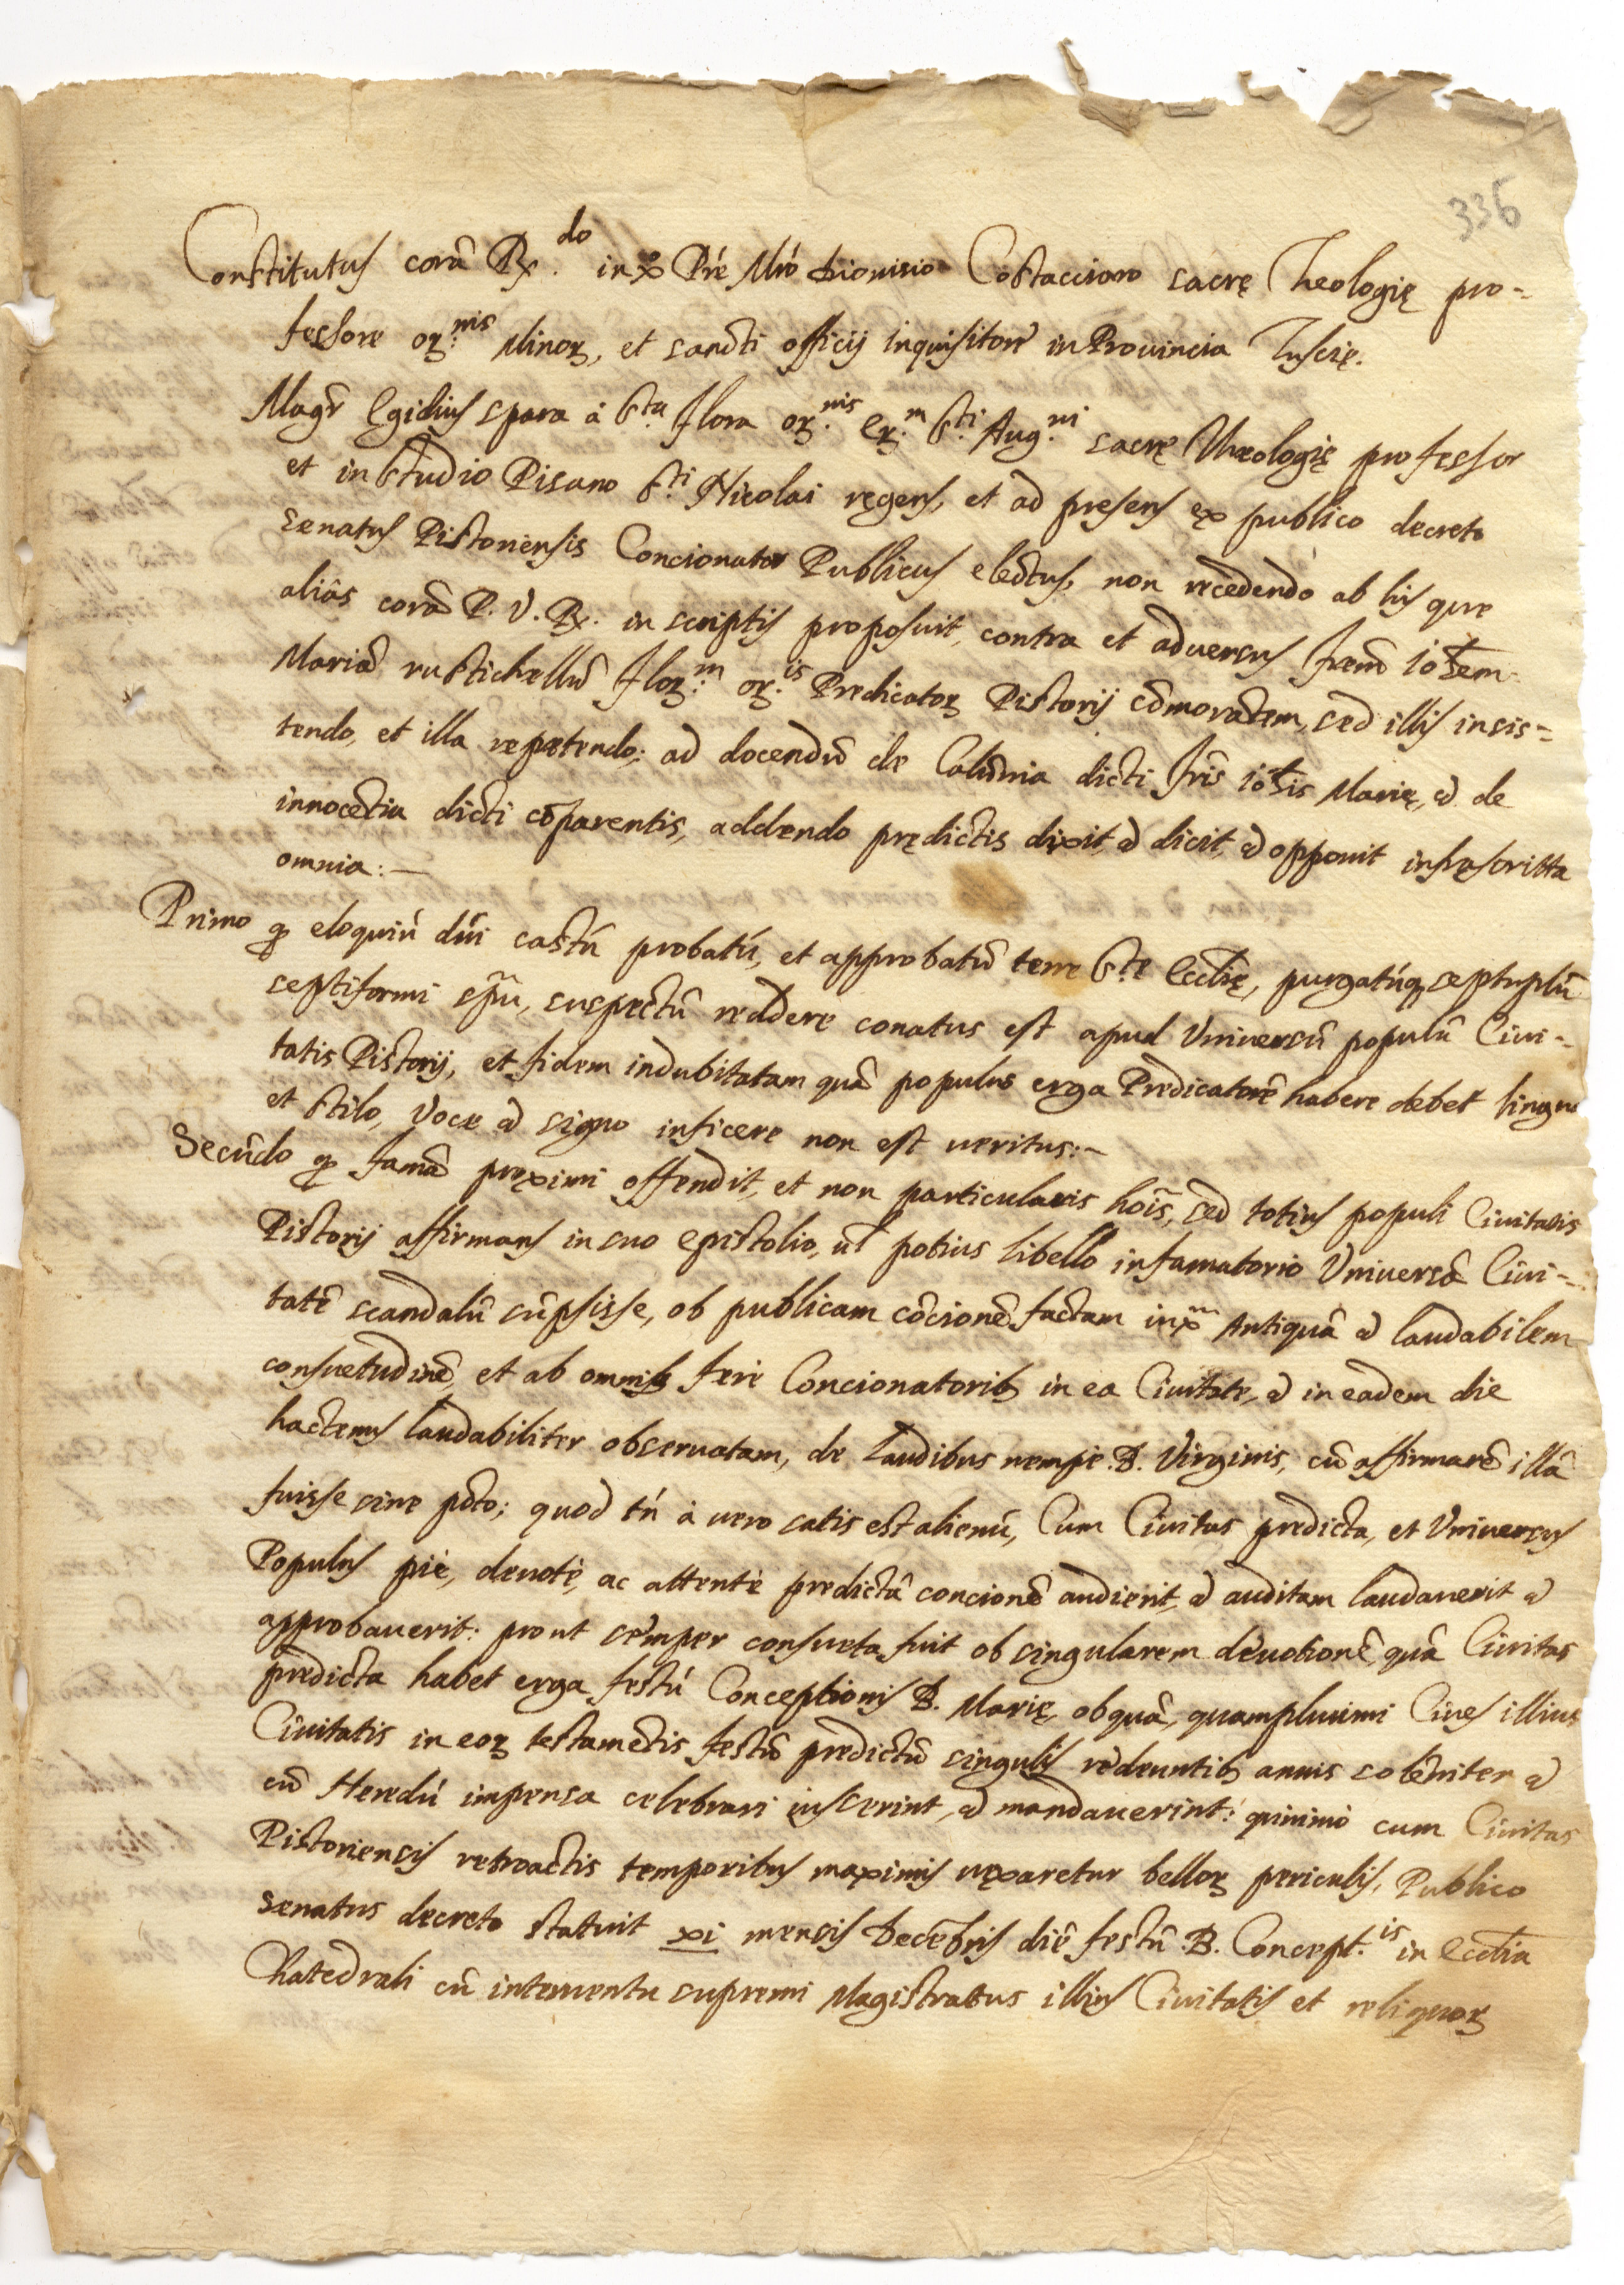 336
Constitutus corã Rx.do in xo Pre Mro Dionisio Costacciaro sacrę Theologię pro-
fessore or.nis Minor, et sancti officij inquisitore in Prouincia Tuscię.
Magr Egidius spara à Sta. flora or.nis er.m S.ti Aug.ni sacrę Theologię professor
et in studio Pisano S.ti Nicolai regens, et ad presens ex publico decreto
senatus Pistoriensis Concionator Publicus electus, non recedendo ab his que
aliâs corã P. V. Rx. in scriptis proposuit, contra et aduersus frẽm Ioẽm
Mariã rustichellũ flor.m or.is Predicator Pistorij cõmorãtem, sed illis insis-
tendo, et illa repetendo: ad docendũ de Calũnia dicti fris Iois Marię, & de
innocẽtia dicti cõparentis, addendo prędictis dixit, & dicit, & opponit infrascritta
omnia:—
Primo q eloquiũ dñi castũ probatũ, et approbatũ terre S.te Ecclię, purgatũq septuplũ
septiformi spũ, suspectũ reddere conatus est apud Vniuersũ populũ Ciui-
tatis Pistorij, et fidem indubitatam quã populus erga Predicatorẽ habere debet lingua
et stilo, voce & signo inficere non est ueritus:—
Secũdo q famã proximi offendit, et non particularis hoĩs, sed totius populi Ciuitatis
Pistorij affirmans in suo epistolio, ul potius libello infamatorio Vniversã Ciui-
tatẽ scandalũ sũpsisse, ob publicam cõcionẽ factam inxm Antiquã & laudabilem
consuetudinẽ, et ab omnib fere Concionatorib in ea Ciuitate, & in eadem die
hactenus laudabiliter obseruatam, de laudibus nempe B. Virginis, cũ affirmarẽ illã
fuisse sine pcto; quod tñ à uero satis est alienũ, Cum Ciuitas predicta, et Vniuersus
Populus piè, deuotè, ac attentè predictã concionẽ audierit, & auditam laudauerit &
approbauerit: prout semper consueta fuit ob singularem deuotionẽ quã Ciuitas
predicta habet erga festũ Conceptionis B. Marię, ob quã, quamplurimi Ciues illius
Ciuitatis in eor testamẽtis festũ predictũ singulis redeuntib annis solẽniter &
cũ Heredũ impensa celebrari iusserint, & mandauerint: quinimò cum Ciuitas
Pistoriensis retroactis temporibus maximis uexaretur bellor periculis, Publico
senatus decreto statuit xi mensis Decẽbris diẽ festũ B. Concept.is in Ecclia
Chatedrali cũ interuentu supremi Magistratus illius Ciuitatis et reliquor